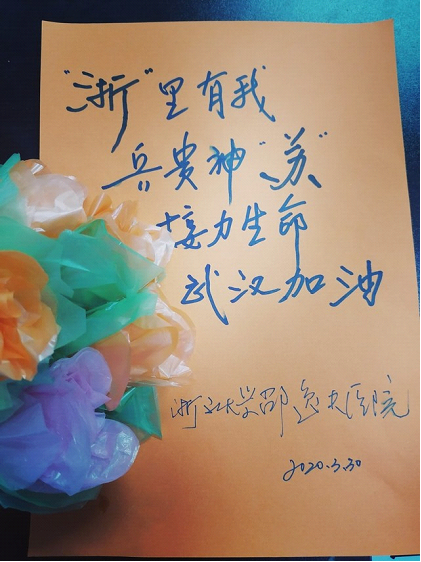 “浙”里有我
兵贵神“苏”
接力生命
武汉加油
浙江大学邵逸夫医院
2020.3.30